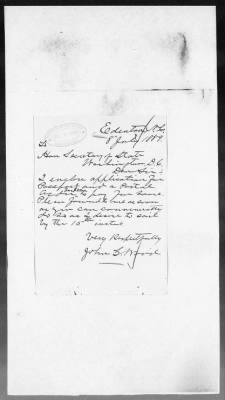 Edenton, N.C.
8 July 1889.
To
Hon Secretary of State
Washington, D.C.
Dear Sir:-
I enclose application for
Passport and a Postal
to pay for same.
Please forward to me as soon
as you can conveniently
do so as I desire to sail
by the 15th inst.
Very Respectfully
John C. Wood